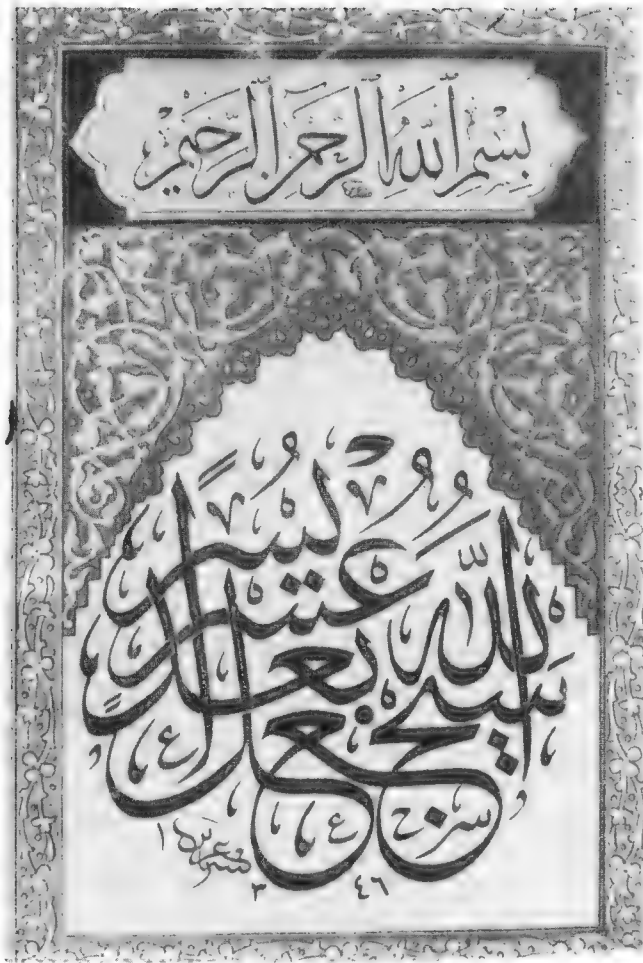 بِسْمِ اللَّهِ الرَّحْمَنِ الرَّحِيمِ
سَيَجْعَلُ اللَّهُ بَعْدَ عُسْرٍ يُسْرًا
١٣٤٦